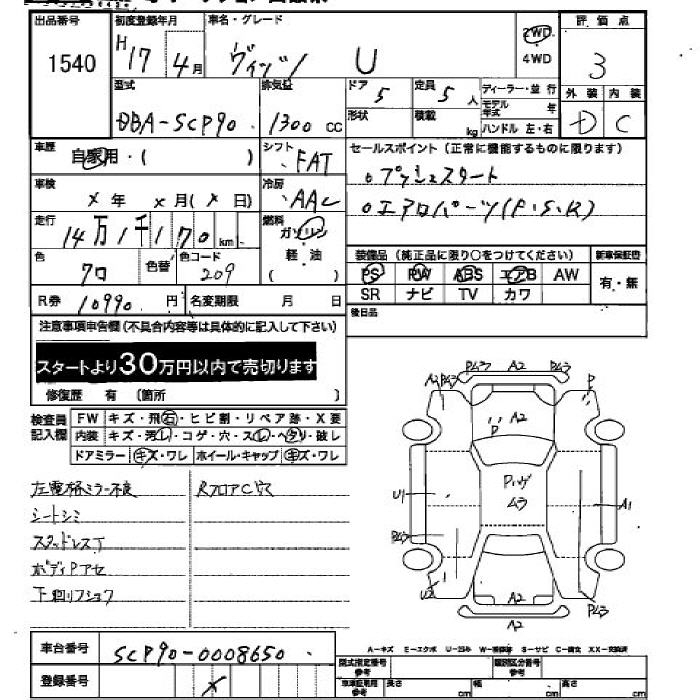 出品番号
1540
初度登録年月
H17年4月
車名・グレード
ヴィッツ U
2WD
4WD
評価点
3
外装 内装
D C
型式
DBA-SCP90
排気量
1300 cc
ドア
5
定員
5人
形状
積載
kg
ディーラー・並行
モデル年式 年
ハンドル 左・右
車歴
自家用・( )
シフト
FAT
セールスポイント(正常に機能するものに限ります)
○プッシュスタート
○エアロパーツ(F.S.R)
車検
×年 ×月(×日)
冷房
AAC
走行
14万1千170km
燃料
ガソリン
軽・油
( )
色
クロ
色替
色コード
209
装備品(純正品に限り○をつけてください)
新車保証書
PS PW ABS エアB AW
SR ナビ TV カワ
有・無
R券 10990円
名変期限 月 日
後日品
注意事項申告欄(不具合内容等は具体的に記入して下さい)
スタートより30万円以内で売切ります
修復歴 有(箇所 )
検査員記入欄
FW キズ・飛石・ヒビ割・リペア跡・X要
内装 キズ・汚レ・コゲ・穴・スレ・ヘタリ・破レ
ドアミラー キズ・ワレ ホイール・キャップ キズ・ワレ
左電格ミラー不良
RフロアC穴
シートシミ
スタッドレスT
ボディPアセ
下回リフショク
P43 A2 P43
A2 P43
P
A2
P
Pハゲ
ムラ
U1
A1
P43
U2
P43
A2
A2
車台番号
SCP90-0008650
登録番号
×
A-キズ E-エクボ U-凹み W-補修跡 S-サビ C-腐食 XX-交換済
型式指定番号
参考
類別区分番号
参考
車庫証明用
参考
長さ cm
幅 cm
高さ cm